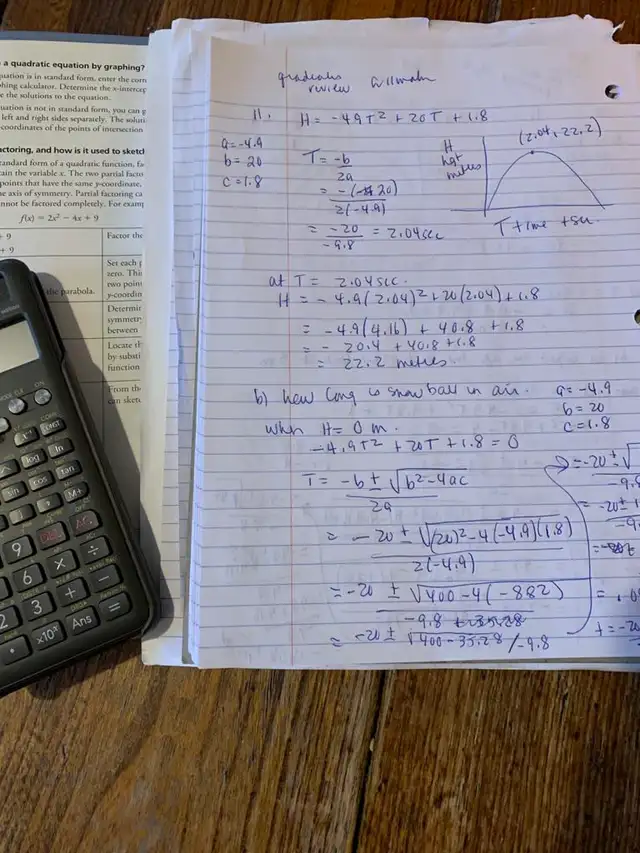 a quadratic equation by graphing?
uation is in standard form, enter the corr
hing calculator. Determine the x-intercep
e the solutions to the equation.
uation is not in standard form, you can g
left and right sides separately. The soluti
coordinates of the points of intersection
actoring, and how is it used to sketc
tandard form of a quadratic function, fa
tain the variable x. The two partial facto
points that have the same y-coordinate,
e axis of symmetry. Partial factoring ca
nnot be factored completely. For examp
f(x) = 2x² − 4x + 9
+ 9
Factor the
+ 9
Set each p
zero. This
two point
y-coordin
the parabola.
Determin
symmetry
between
Locate th
by substi
function
From the
can sketc
review
11.
H = -4.9T² + 20T + 1.8
a = -4.9
b = 20
c = 1.8
T = -b
2a
= -(20)
2(-4.9)
= -20
-9.8
= 2.04sec
H
hgt
metres
(2.04, 22.2)
T time sec.
at T = 2.04 sec.
H = -4.9(2.04)² + 20(2.04) + 1.8
= -4.9(4.16) + 40.8 + 1.8
= - 20.4 + 40.8 + 1.8
= 22.2 metres
b) how long is snowball in air.
a = -4.9
b = 20
c = 1.8
when H = 0 m.
-4.9T² + 20T + 1.8 = 0
T = -b ± √b² - 4ac
2a
= - 20 ± √(20)² - 4(-4.9)(1.8)
2(-4.9)
= -20 ± √400 - 4(-882)
-9.8 ± 35.28
= -20 ± √400 - 35.28 / -9.8
= -20 ± √
-9.8
= -20 ± 1
-9
t = -20
MODE CLR
ON
log
ln
sin
cos
tan
M+
9
DEL
AC
6
×
÷
2
3
+
−
·
×10ˣ
Ans
=